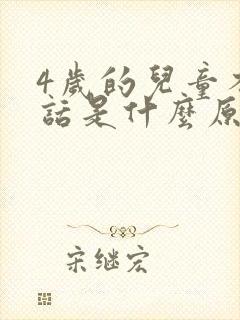 4歲的兒童
話是什麼原
宋继宏